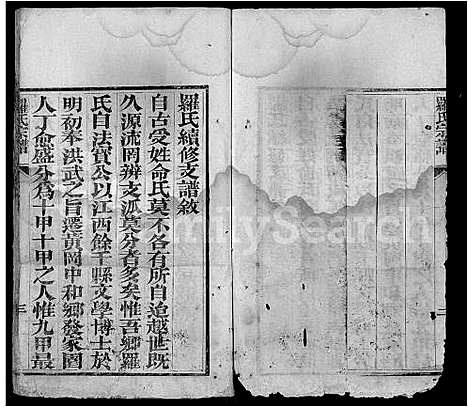 羅氏續修支譜敘
自古受姓命氏莫不各有所自迨越世既
久源流罔辨支派莫分者多矣惟吾鄉羅
氏自法寶公以江西餘干縣文學博士於
明初奉洪武之旨遷黃岡中和鄉發家園
人丁愈盛分為十甲十甲之人惟九甲最
羅氏宗譜
三
羅氏宗譜
二
FamilySearch